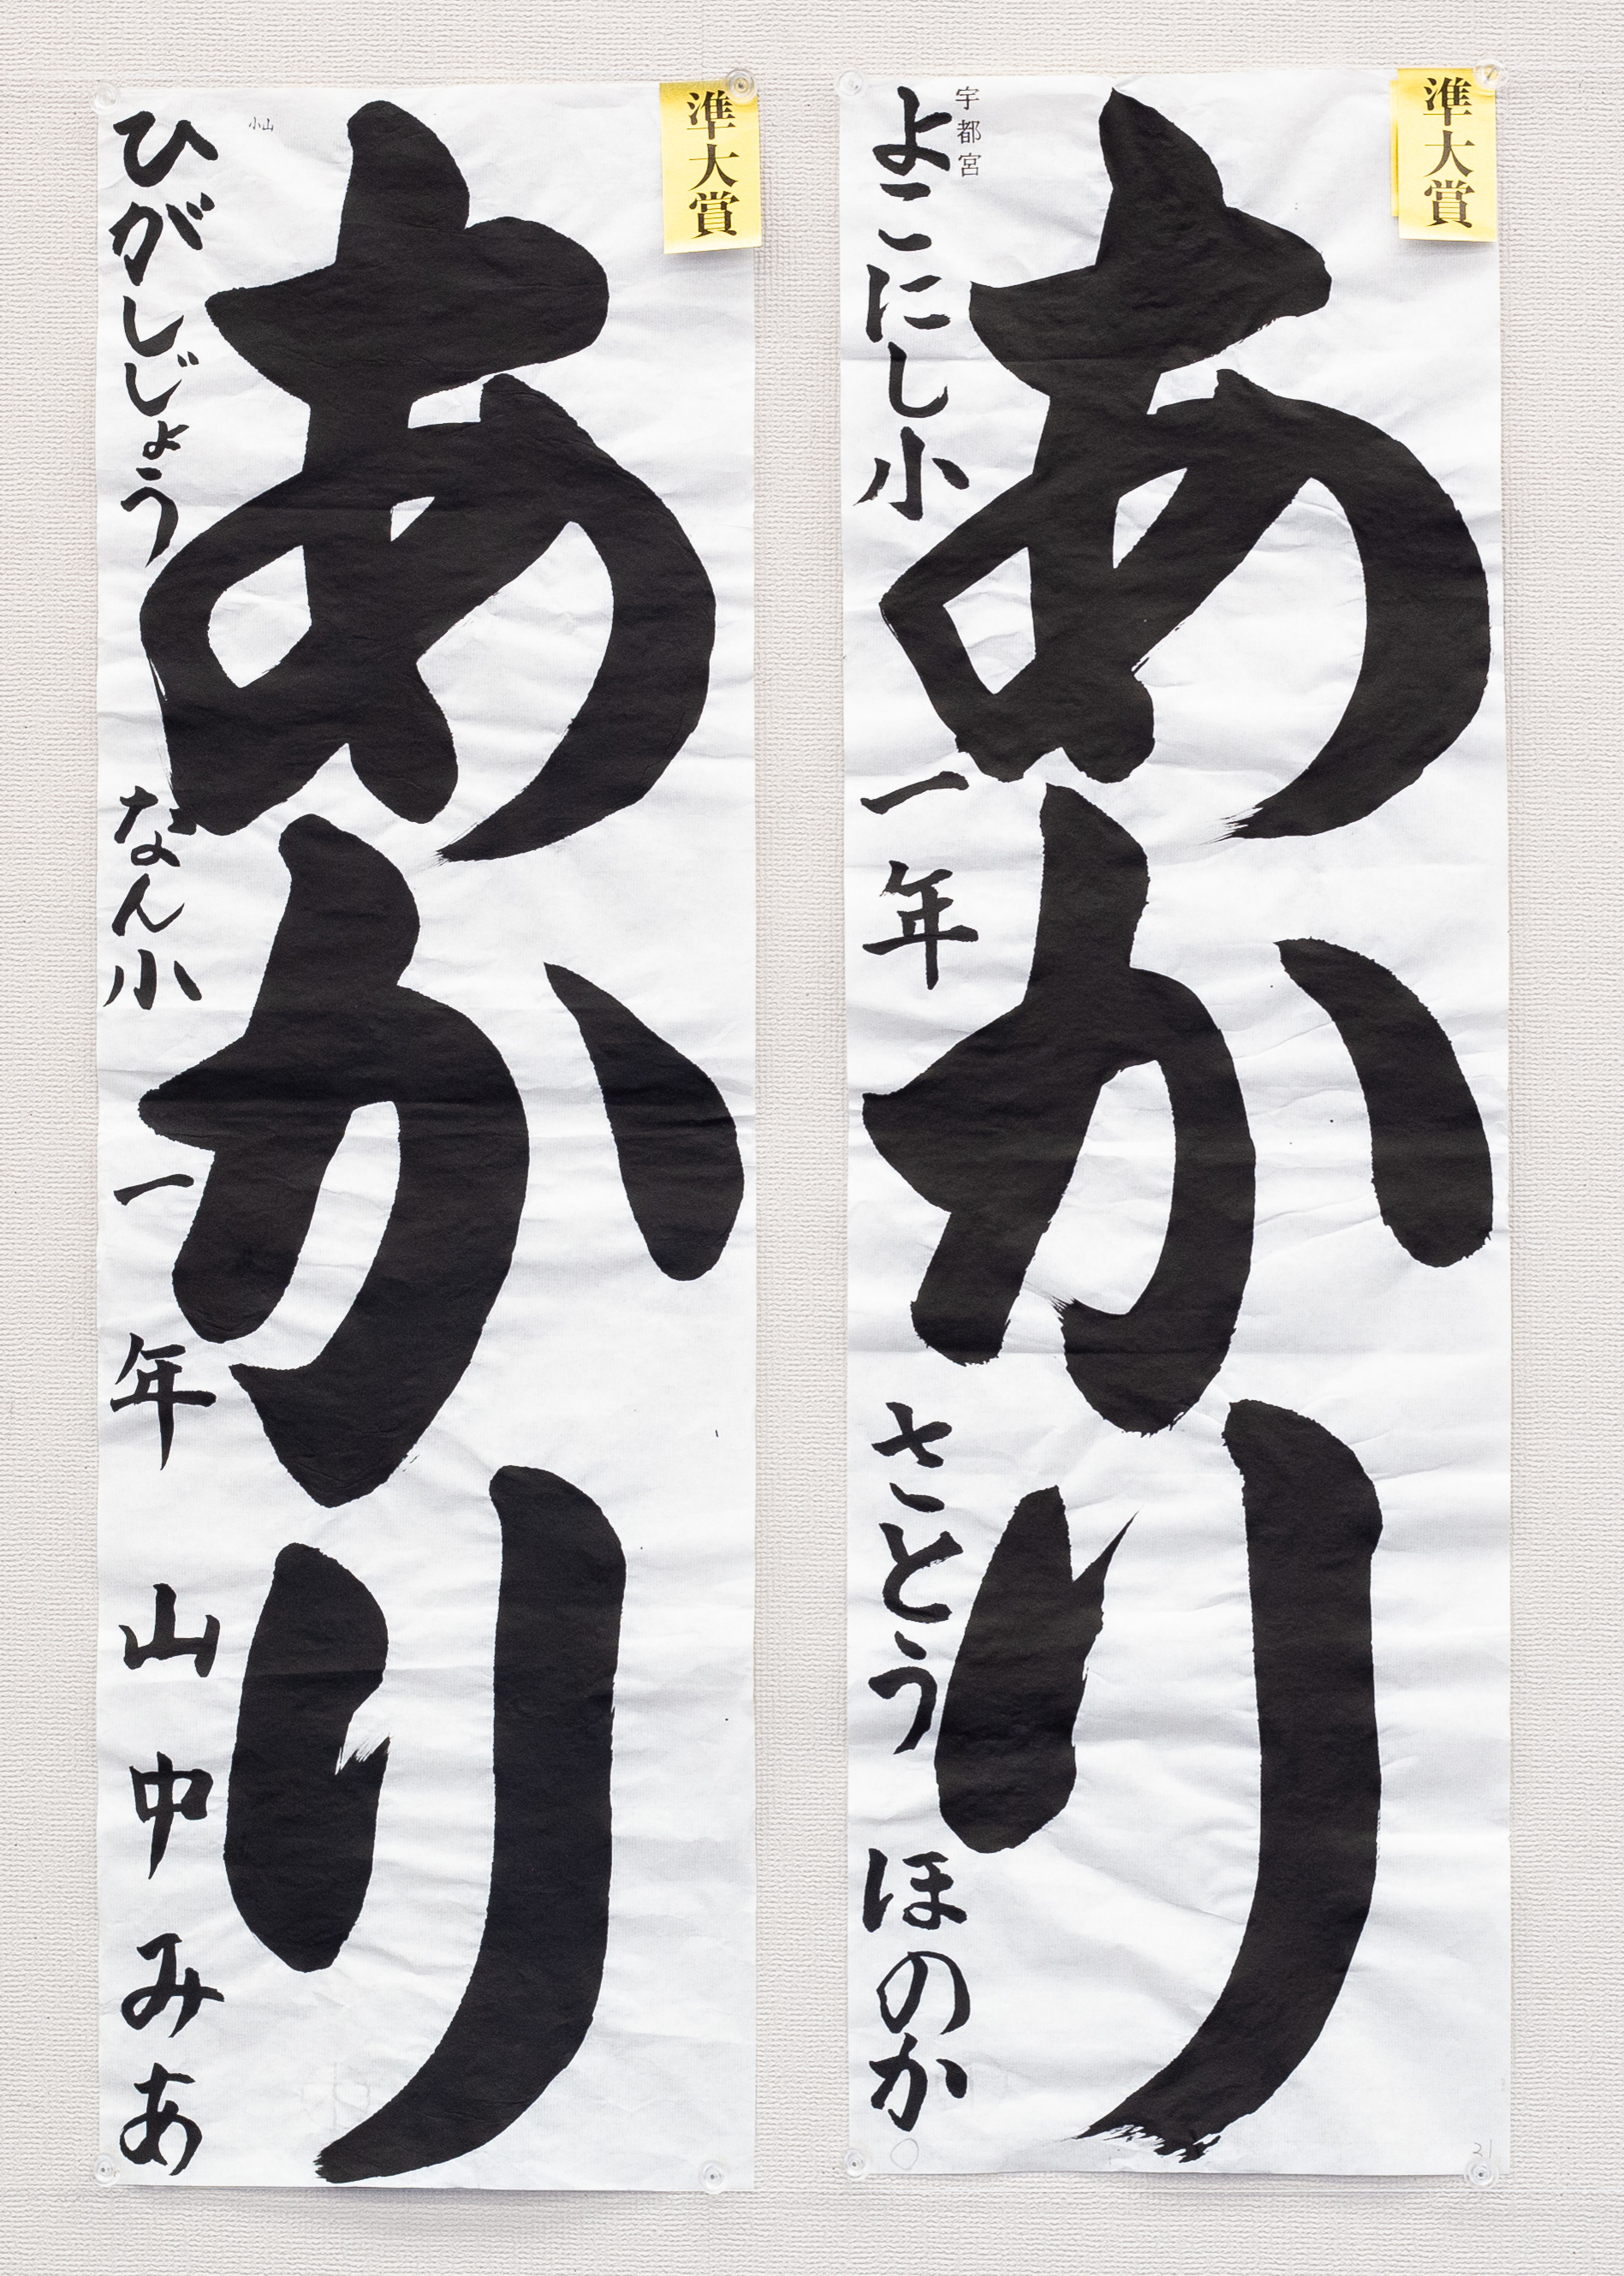 準大賞
あかり
宇都宮
よこにし小 一年 さとう ほのか
21
準大賞
あかり
小山
ひがしじょうなん小 一年 山中みあ